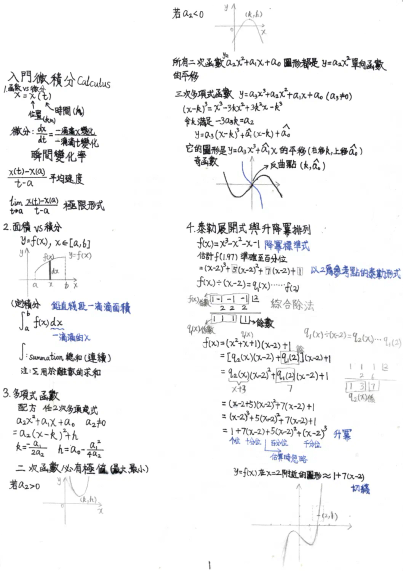 入門微積分 Calculus
1. 函數 vs 微分
x = x(t)
位置(km) 時間(h)
微分: dx/dt = 一滴滴x變化/一滴滴t變化
瞬間變化率
x(t)-x(a)/t-a 平均速度
lim t→a x(t)-x(a)/t-a 極限形式
2. 面積 vs 積分
y=f(x), x∈[a,b]
f(x) y=f(x)
dx
a x b
(定)積分 鉛直線是一滴滴面積
∫ₐᵇ f(x)dx
一滴滴的x
∫: summation 總和(連續)
註: Σ用於離散的求和
3. 多項式函數
配方 任2次多項式
a₂x²+a₁x+a₀ a₂≠0
=a₂(x-k)²+h
k=-a₁/2a₂ h=a₀-a₁²/4a₂
二次函數必有極值(最大最小)
若a₂>0
y (k,h) x
若a₂<0
y (k,h) x
所有二次函數 a₂x²+a₁x+a₀ 圖形都是 y=a₂x² 單項函數
的平移
三次多項式函數 y=a₃x³+a₂x²+a₁x+a₀ (a₃≠0)
(x-k)³=x³-3kx²+3k²x-k³
令k滿足 -3a₃k=a₂
y=a₃(x-k)³+â₁(x-k)+â₀
它的圖形是 y=a₃x³+â₁x 的平移(右移k,上移â₀)
奇函數 反曲點(k,â₀)
4. 泰勒展開式與升降冪排列
f(x)=x³-x²-x-1 降冪標準式
估計f(1.97)準確至百分位
=(x-2)³+5(x-2)²+7(x-2)+1 以2為參考點的泰勒形式
f(x)÷(x-2)=q₁(x)⋯f(2)
f(x)係數 1 -1 -1 -1 2 綜合除法
2 2 2
1 1 1 1 →餘數
q₁(x)係數
f(x)=(x²+x+1)(x-2)+1 q₁(x)÷(x-2)=q₂(x)⋯q₁(2)
=[q₂(x)(x-2)+q₁(2)](x-2)+1
1 1 1 2
2 6
1 3 7
q₂(x)係數
=q₂(x)(x-2)²+q₁(2)(x-2)+1
x+3 7
=(x-2+5)(x-2)²+7(x-2)+1
=(x-2)³+5(x-2)²+7(x-2)+1
=1+7(x-2)+5(x-2)²+(x-2)³ 升冪
個位 十分位 百分位 千分位
估算時忽略
y=f(x)在x=2附近的圖形≈1+7(x-2)
切線
1